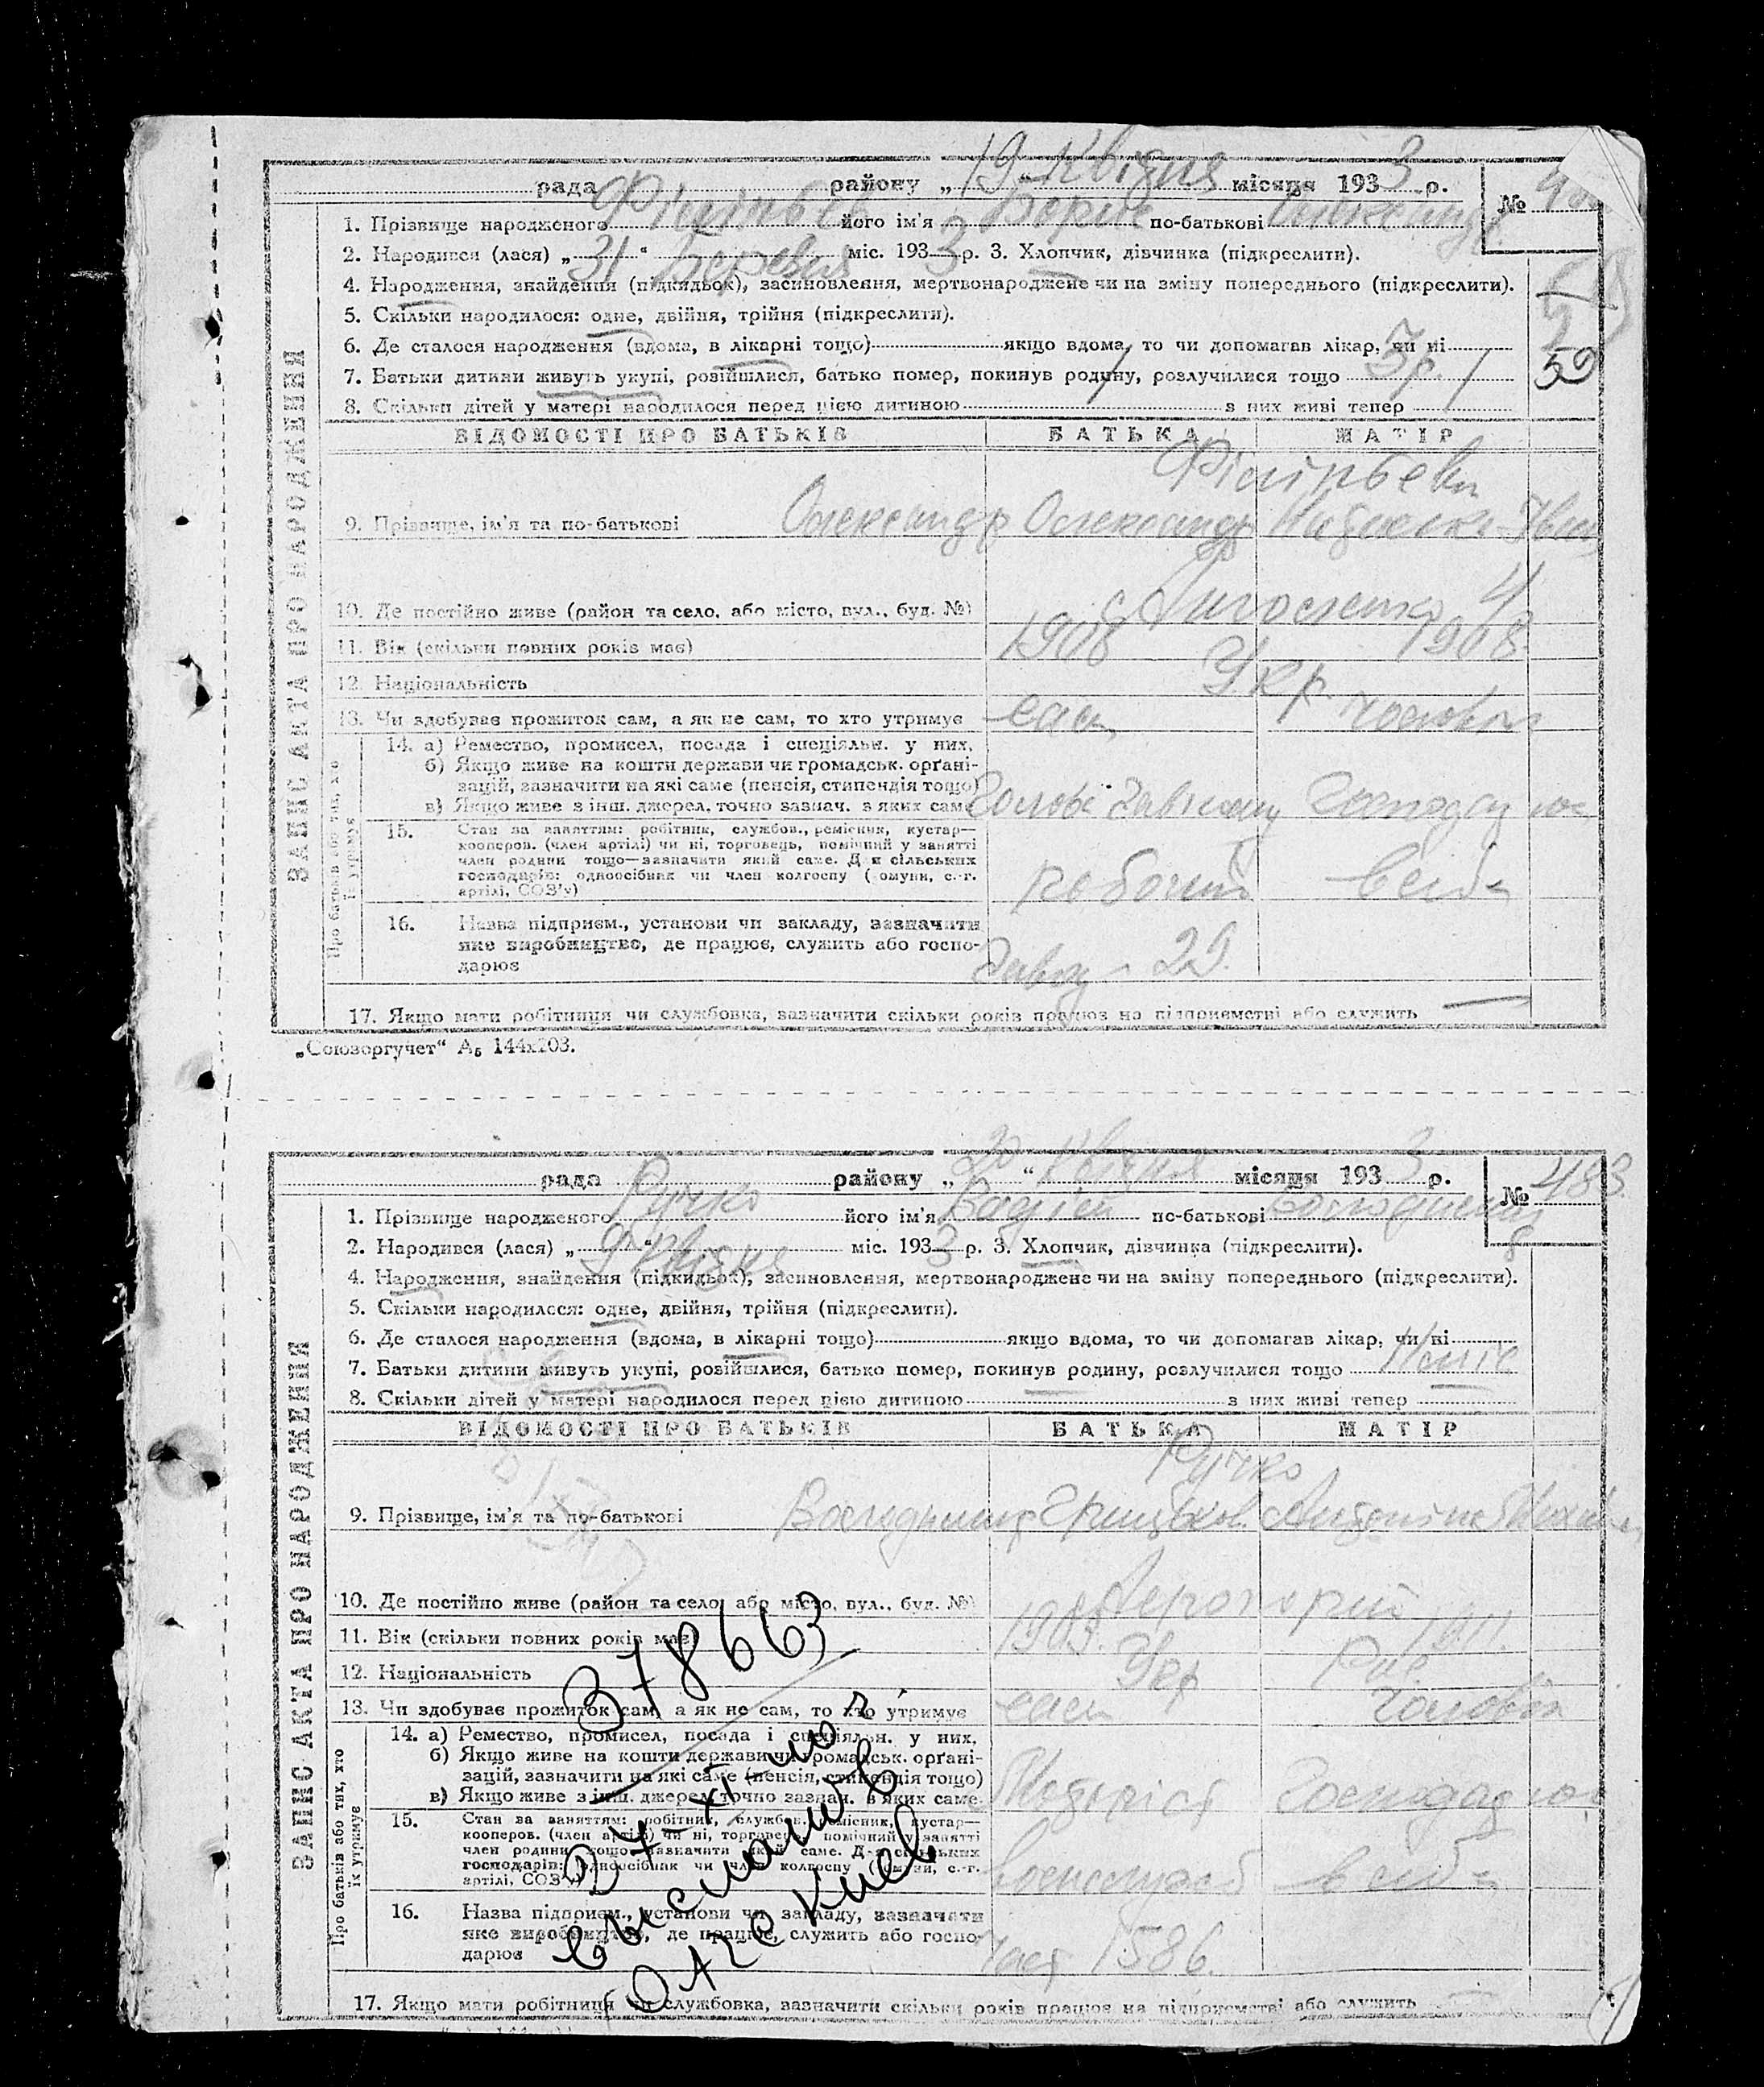 рада района „19“ Квітня місяця 1933 р. №
1. Прізвище народженого Філіпьєв його ім'я Борис по-батькові Олександр
2. Народився (лася) „31“ Березня міс. 1933 р. 3. Хлопчик, дівчинка (підкреслити).
4. Народження, знайдення (підкидьок), засиновлення, мертвонароджене чи на зміну попереднього (підкреслити).
5. Скільки народилося: одне, двійня, трійня (підкреслити).
6. Де сталося народження (вдома, в лікарні тощо) якщо вдома, то чи допомагав лікар, чи ні
7. Батьки дитини живуть укупі, розійшлися, батько помер, покинув родину, розлучилися тощо 3р.
59
8. Скільки дітей у матері народилося перед цією дитиною 1 з них живі тепер 1
ЗАПИС АКТА ПРО НАРОДЖЕННЯ
ВІДОМОСТІ ПРО БАТЬКІВ БАТЬКА МАТІР
Філіпьєви
9. Прізвище, ім'я та по-батькові Олександр Олександр
10. Де постійно живе (район та село, або місто, вул., буд. №)
11. Вік (скільки повних років має) 1908 1908
12. Національність Укр.
13. Чи здобуває прожиток сам, а як не сам, то хто утримує сам чоловік
Про батьків або тих, хто їх утримує
14. а) Ремество, промисел, посада і спеціяльн. у них,
б) Якщо живе на кошти держави чи громадськ. орґані-
зацій, зазначити на які саме (пенсія, стипендія тощо)
в) Якщо живе з інш. джерел, точно зазнач. з яких саме Голова Завкому Господарює
15. Стан за заняттям: робітник, службов., ремісник, кустар—
кооперов. (член артілі) чи ні, торговець, помічний у занятті
член родини тощо—зазначити який саме. Для сільських
господарів: одноосібник чи член колгоспу (комуни, с.-г.
артілі, СОЗ'у) робочий
16. Назва підприєм., установи чи закладу, зазначити
яке виробництво, де працює, служить або госпо-
дарює Завод - 29.
17. Якщо мати робітниця чи службовка, зазначити скільки років працює на підприємстві або служить —
„Союзоргучет“ А₅ 144х203.
рада району „20“ Квітня місяця 1933 р. № 483
1. Прізвище народженого Ручко його ім'я Вадим по-батькові Володимир
2. Народився (лася) „9“ Квітня міс. 1933 р. 3. Хлопчик, дівчинка (підкреслити).
4. Народження, знайдення (підкидьок), засиновлення, мертвонароджене чи на зміну попереднього (підкреслити).
5. Скільки народилося: одне, двійня, трійня (підкреслити).
6. Де сталося народження (вдома, в лікарні тощо) якщо вдома, то чи допомагав лікар, чи ні
7. Батьки дитини живуть укупі, розійшлися, батько помер, покинув родину, розлучилися тощо
8. Скільки дітей у матері народилося перед цією дитиною — з них живі тепер —
ЗАПИС АКТА ПРО НАРОДЖЕННЯ
ВІДОМОСТІ ПРО БАТЬКІВ БАТЬКА МАТІР
Ручко
9. Прізвище, ім'я та по-батькові Володимир Грицьков.
10. Де постійно живе (район та село, або місто, вул., буд. №)
11. Вік (скільки повних років має) 1911.
12. Національність Укр Рус
13. Чи здобуває прожиток сам, а як не сам, то хто утримує сам чоловік
Про батьків або тих, хто їх утримує
14. а) Ремество, промисел, посада і спеціяльн. у них,
б) Якщо живе на кошти держави чи громадськ. орґані-
зацій, зазначити на які саме (пенсія, стипендія тощо)
в) Якщо живе з інш. джерел, точно зазнач. з яких саме Моторіст Господарює
15. Стан за заняттям: робітник, службов., ремісник, кустар—
кооперов. (член артілі) чи ні, торговець, помічний у занятті
член родини тощо—зазначити який саме. Для сільських
господарів: одноосібник чи член колгоспу (комуни, с.-г.
артілі, СОЗ'у) военслужб
16. Назва підприєм., установи чи закладу, зазначити
яке виробництво, де працює, служить або госпо-
дарює Част 1586.
17. Якщо мати робітниця чи службовка, зазначити скільки років працює на підприємстві або служить —
378663
выслан в
ОАГС Киев